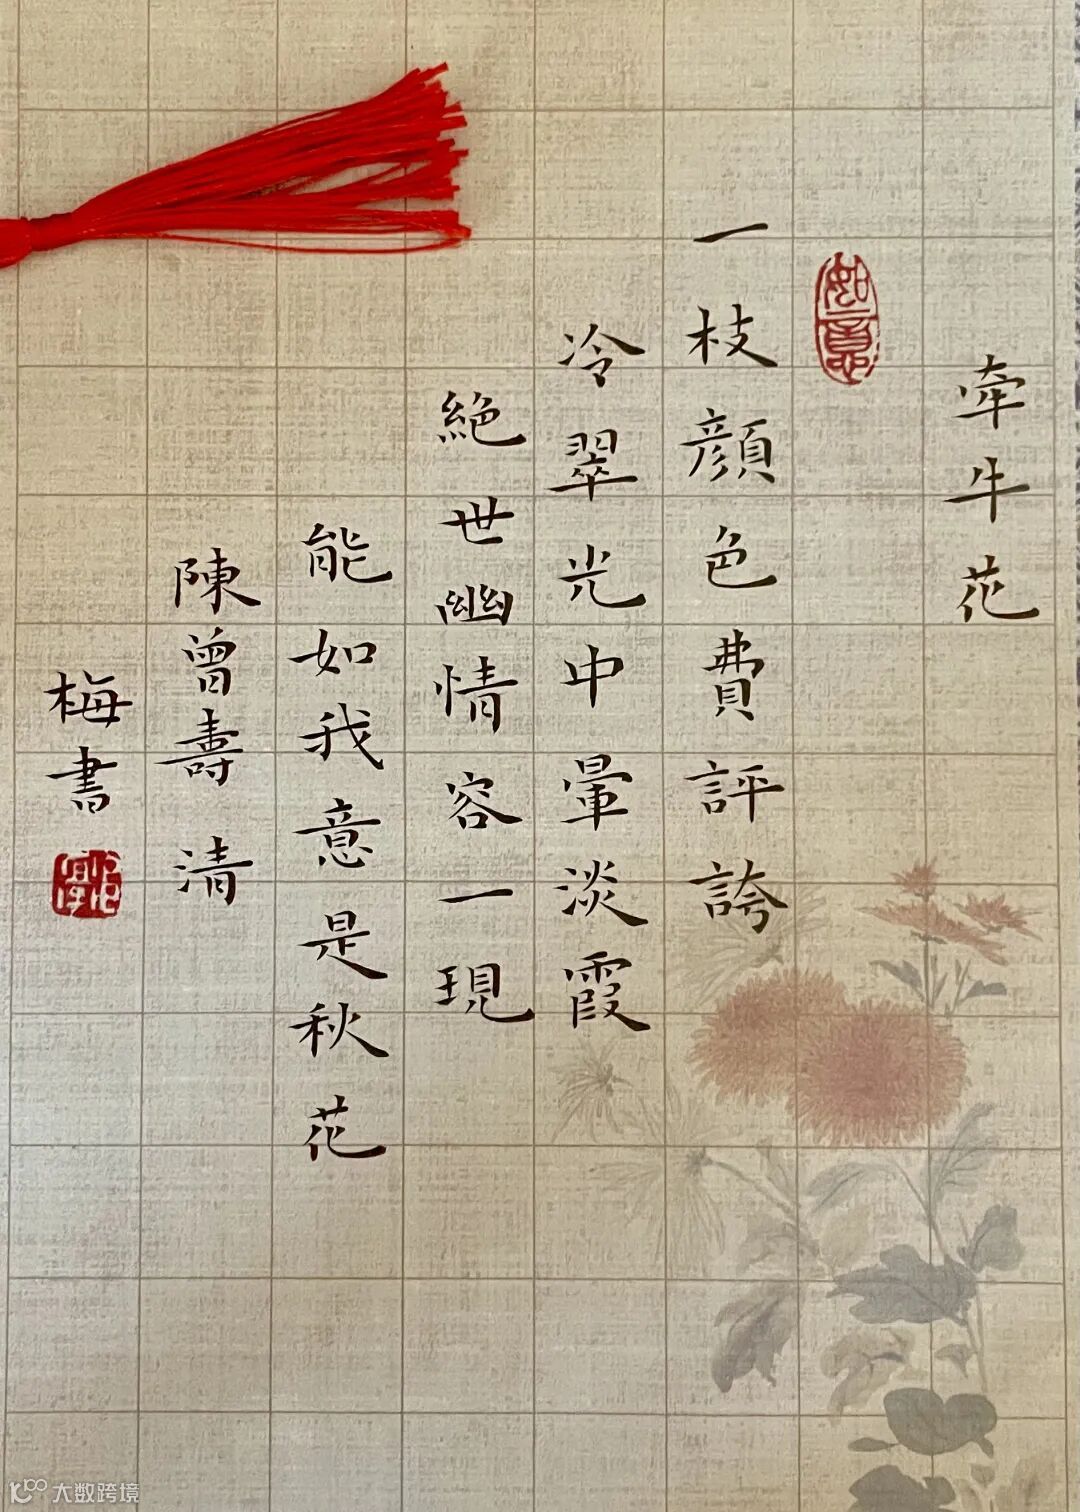 牽牛花
如意
一枝顏色費評誇
冷翠光中暈淡霞
絕世幽情容一現
能如我意是秋花
陳曾壽 清
梅書
大数跨境